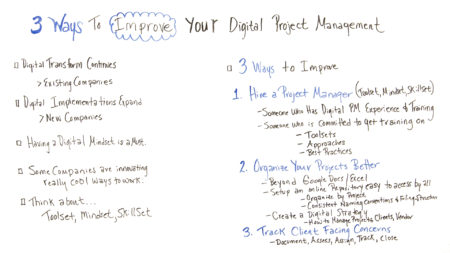 3 Ways To Improve Your Digital Project Management
Digital Transform Continues
> Existing Companies
Digital Implementations Expand
> New Companies
Having a Digital Mindset is a Must.
Some Companies are innovating
really cool ways to work.
Think about...
Toolset, Mindset, SkillSet
3 Ways to Improve
1. Hire a Project Manager (Toolset, Mindset, SkillSet)
- Someone Who Has Digital PM Experience & Training
- Someone who is committed to get training on
- Toolsets
- Approaches
- Best Practices
2. Organize Your Projects Better
- Beyond Google Docs/Excel
- Setup an online Repository easy to access by all
- Organize by Project
- Consistent Naming Conventions & Filing Structure
- Create a Digital Strategy
- How to Manage Projects, Clients, Vendor
3. Track Client Facing Concerns
- Document, Assess, Assign, Track, Close